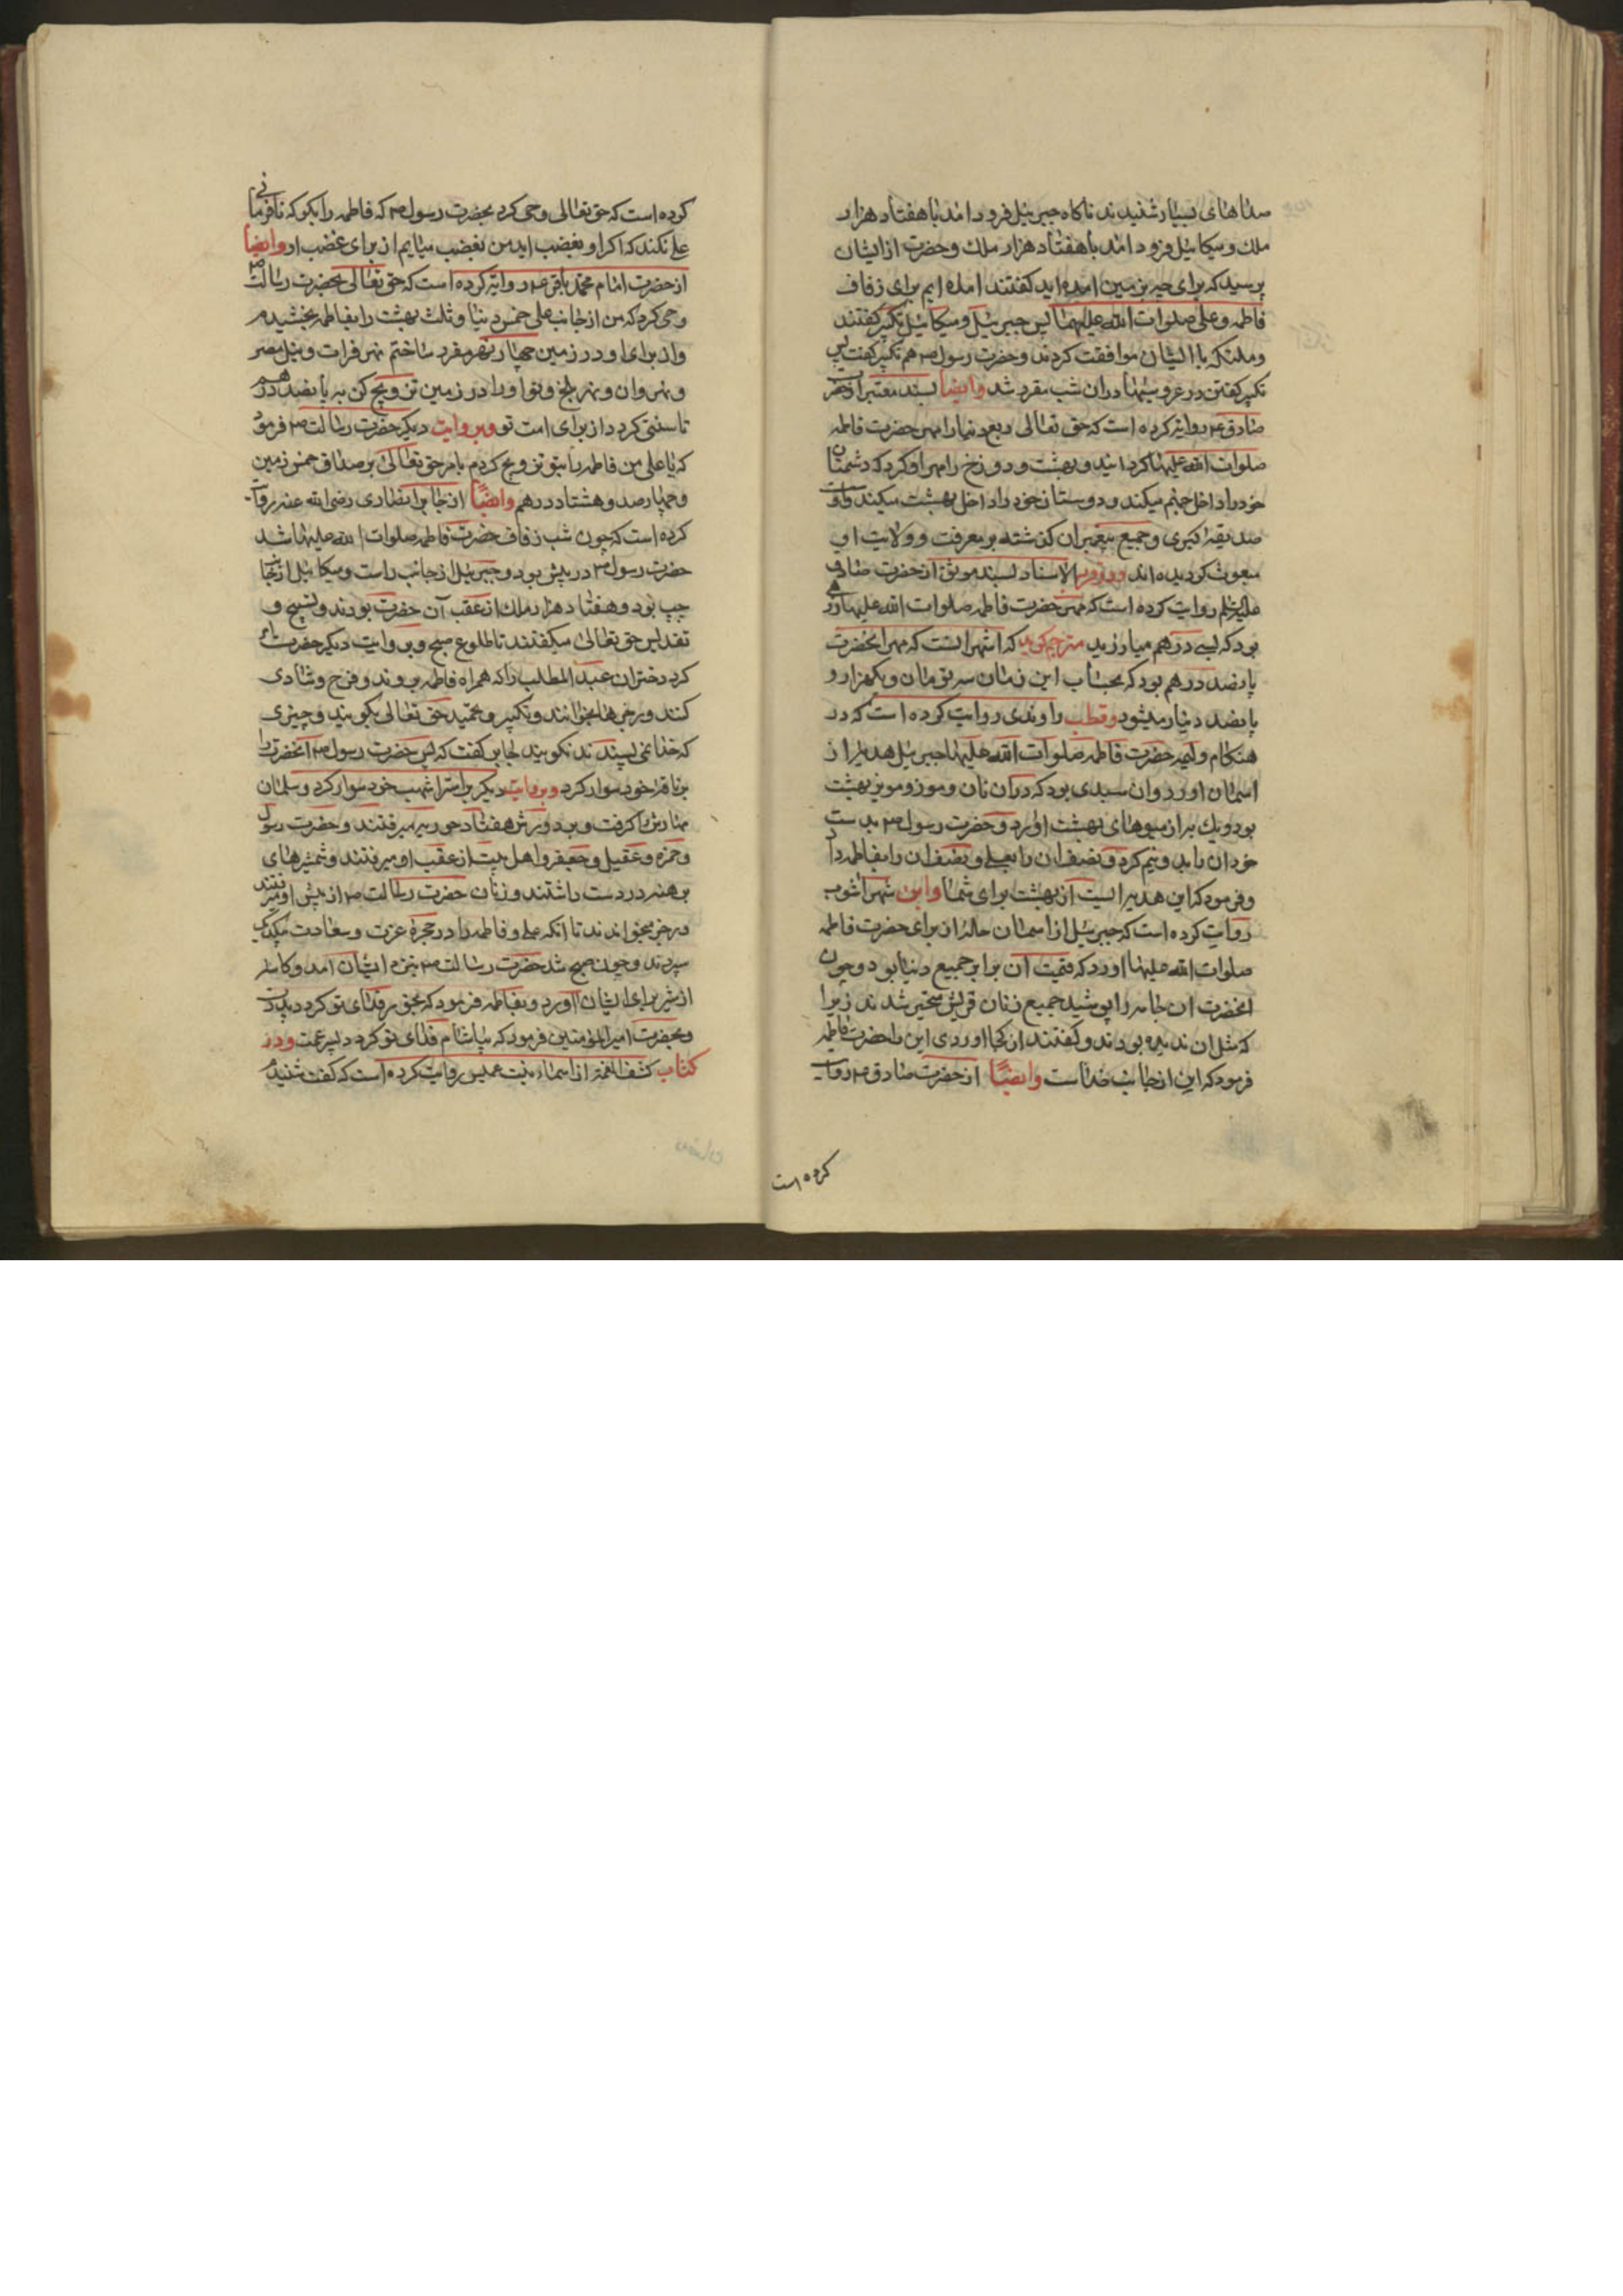 صداهای بسیار شنیدند ناکاه جبرئیل فرود امد با هفتاد هزار
ملك و میکائیل فرود امد با هفتاد هزار ملك و حضرت از ایشان
پرسید که برای چه بزمین امده اید کفتند امده ایم برای زفاف
فاطمه و علی صلوات الله علیهما پس جبرئیل و میکائیل تکبیر کفتند
و ملئکه با ایشان موافقت کردند و حضرت رسول ص هم تکبیر کفت پس
تکبیر کفتن در عروسیها در ان شب مقرر شد وایضا بسند معتبر از حضرت
صادق ع روایة کرده است که حق تعالی ربع دنیا را مهر حضرت فاطمه
صلوات الله علیها کردانید و بهشت و دوزخ را مهر او کرد که دشمنان
خود را داخل جهنم میکند و دوستان خود را داخل بهشت میکند و او
صدیقه کبری و جمیع پیغمبران کذشته بر معرفت و ولایت او
مبعوث کردیده اند و در قرب الاسناد بسند موثق از حضرت صادق
علیه السلم روایت کرده است که مهر حضرت فاطمه صلوات الله علیها زرهی
بود که بسی درهم میارزید مترجم کوید که اشهر انست که مهر انحضرت
پانصد درهم بود که بحساب این زمان سه تومان و یکهزار و
پانصد دینار میشود و قطب راوندی روایت کرده است که در
هنکام ولیمه حضرت فاطمه صلوات الله علیها جبرئیل هدیه از
اسمان اورد وان سبدی بود که در ان نان و موز و مویز بهشت
بود و یك به از میوهای بهشت اورد و حضرت رسول ص بدست
خود ان را بدو نیم کرد و نصف ان را بعلی و نصف ان را بفاطمه داد
و فرمود که این هدیه ایست از بهشت برای شما و ابن شهراشوب
روایت کرده است که جبرئیل از اسمان حله از برای حضرت فاطمه
صلوات الله علیها اورد که قیمت آن برابر جمیع دنیا بود و چون
انحضرت ان جامه را پوشید جمیع زنان قریش متحیر شدند زیرا
که مثل ان ندیده بودند و کفتند از کجا اوردی این را حضرت فاطمه
فرمود که این از جانب خداست وایضًا از حضرت صادق ع روایت
کرده است
کرده است که حق تعالی وحی کرد بحضرت رسول ص که فاطمه را بکو که نافرمانی
علی نکند که اکر او بغضب اید من بغضب میایم از برای غضب او وایضا
از حضرت امام محمد باقر ع روایة کرده است که حق تعالی بحضرت رسالت ص
وحی کرد که من از جانب علی خمس دنیا و ثلث بهشت را بفاطمه بخشیدم
و از برای او در زمین چهار نهر مقرر ساختم نهر فرات و نیل مصر
و نهروان و نهر بلخ و تو او را در زمین تزویج کن به پانصد درهم
تا سنتی کردد از برای امت تو و بروایت دیکر حضرت رسالت ص فرمود
که یا علی من فاطمه را بتو تزویج کردم بامر حق تعالی بر صداق خمس زمین
و چهارصد و هشتاد درهم وایضًا از جابر انصاری رضی الله عنه روایت
کرده است که چون شب زفاف حضرت فاطمه صلوات الله علیها شد
حضرت رسول ص در پیش بود و جبرئیل از جانب راست و میکائیل از جانب
چپ بود و هفتاد هزار ملك از عقب آن حضرت بودند و تسبیح و
تقدیس حق تعالی میکفتند تا طلوع صبح و بروایت دیکر حضرت امر
کرد دختران عبد المطلب را که همراه فاطمه بروند و فرح و شادی
کنند و رجزها بخوانند و تکبیر و تحمید حق تعالی بکویند و چیزی
که خدا نمی پسندد نکویند جابر کفت که پس حضرت رسول ص انحضرت را
بر ناقه خود سوار کرد و بروایت دیکر بر استر اشهب خود سوار کرد و سلمان
مهارش را کرفت و بر دورش هفتاد حوریه میرفتند و حضرت رسول
و حمزه و عقیل و جعفر و اهل بیت از عقب او میرفتند و شمشیرهای
برهنه در دست داشتند و زنان حضرت رسالت ص از پیش او میرفتند
و رجز میخواندند تا انکه علی و فاطمه را در حجرهٔ عزت و سعادت بیکدیکر
سپردند و چون صبح شد حضرت رسالت ص بنزد ایشان امد و کاسه
از شیر برای ایشان اورد و بفاطمه فرمود که بخور فدای تو کردد پدرت
و بحضرت امیر المؤمنین فرمود که بیاشام فدای تو کردد پسر عمت و در
کتاب کشف الغمه از اسماء بنت عمیس روایت کرده است که کفت شنیدم